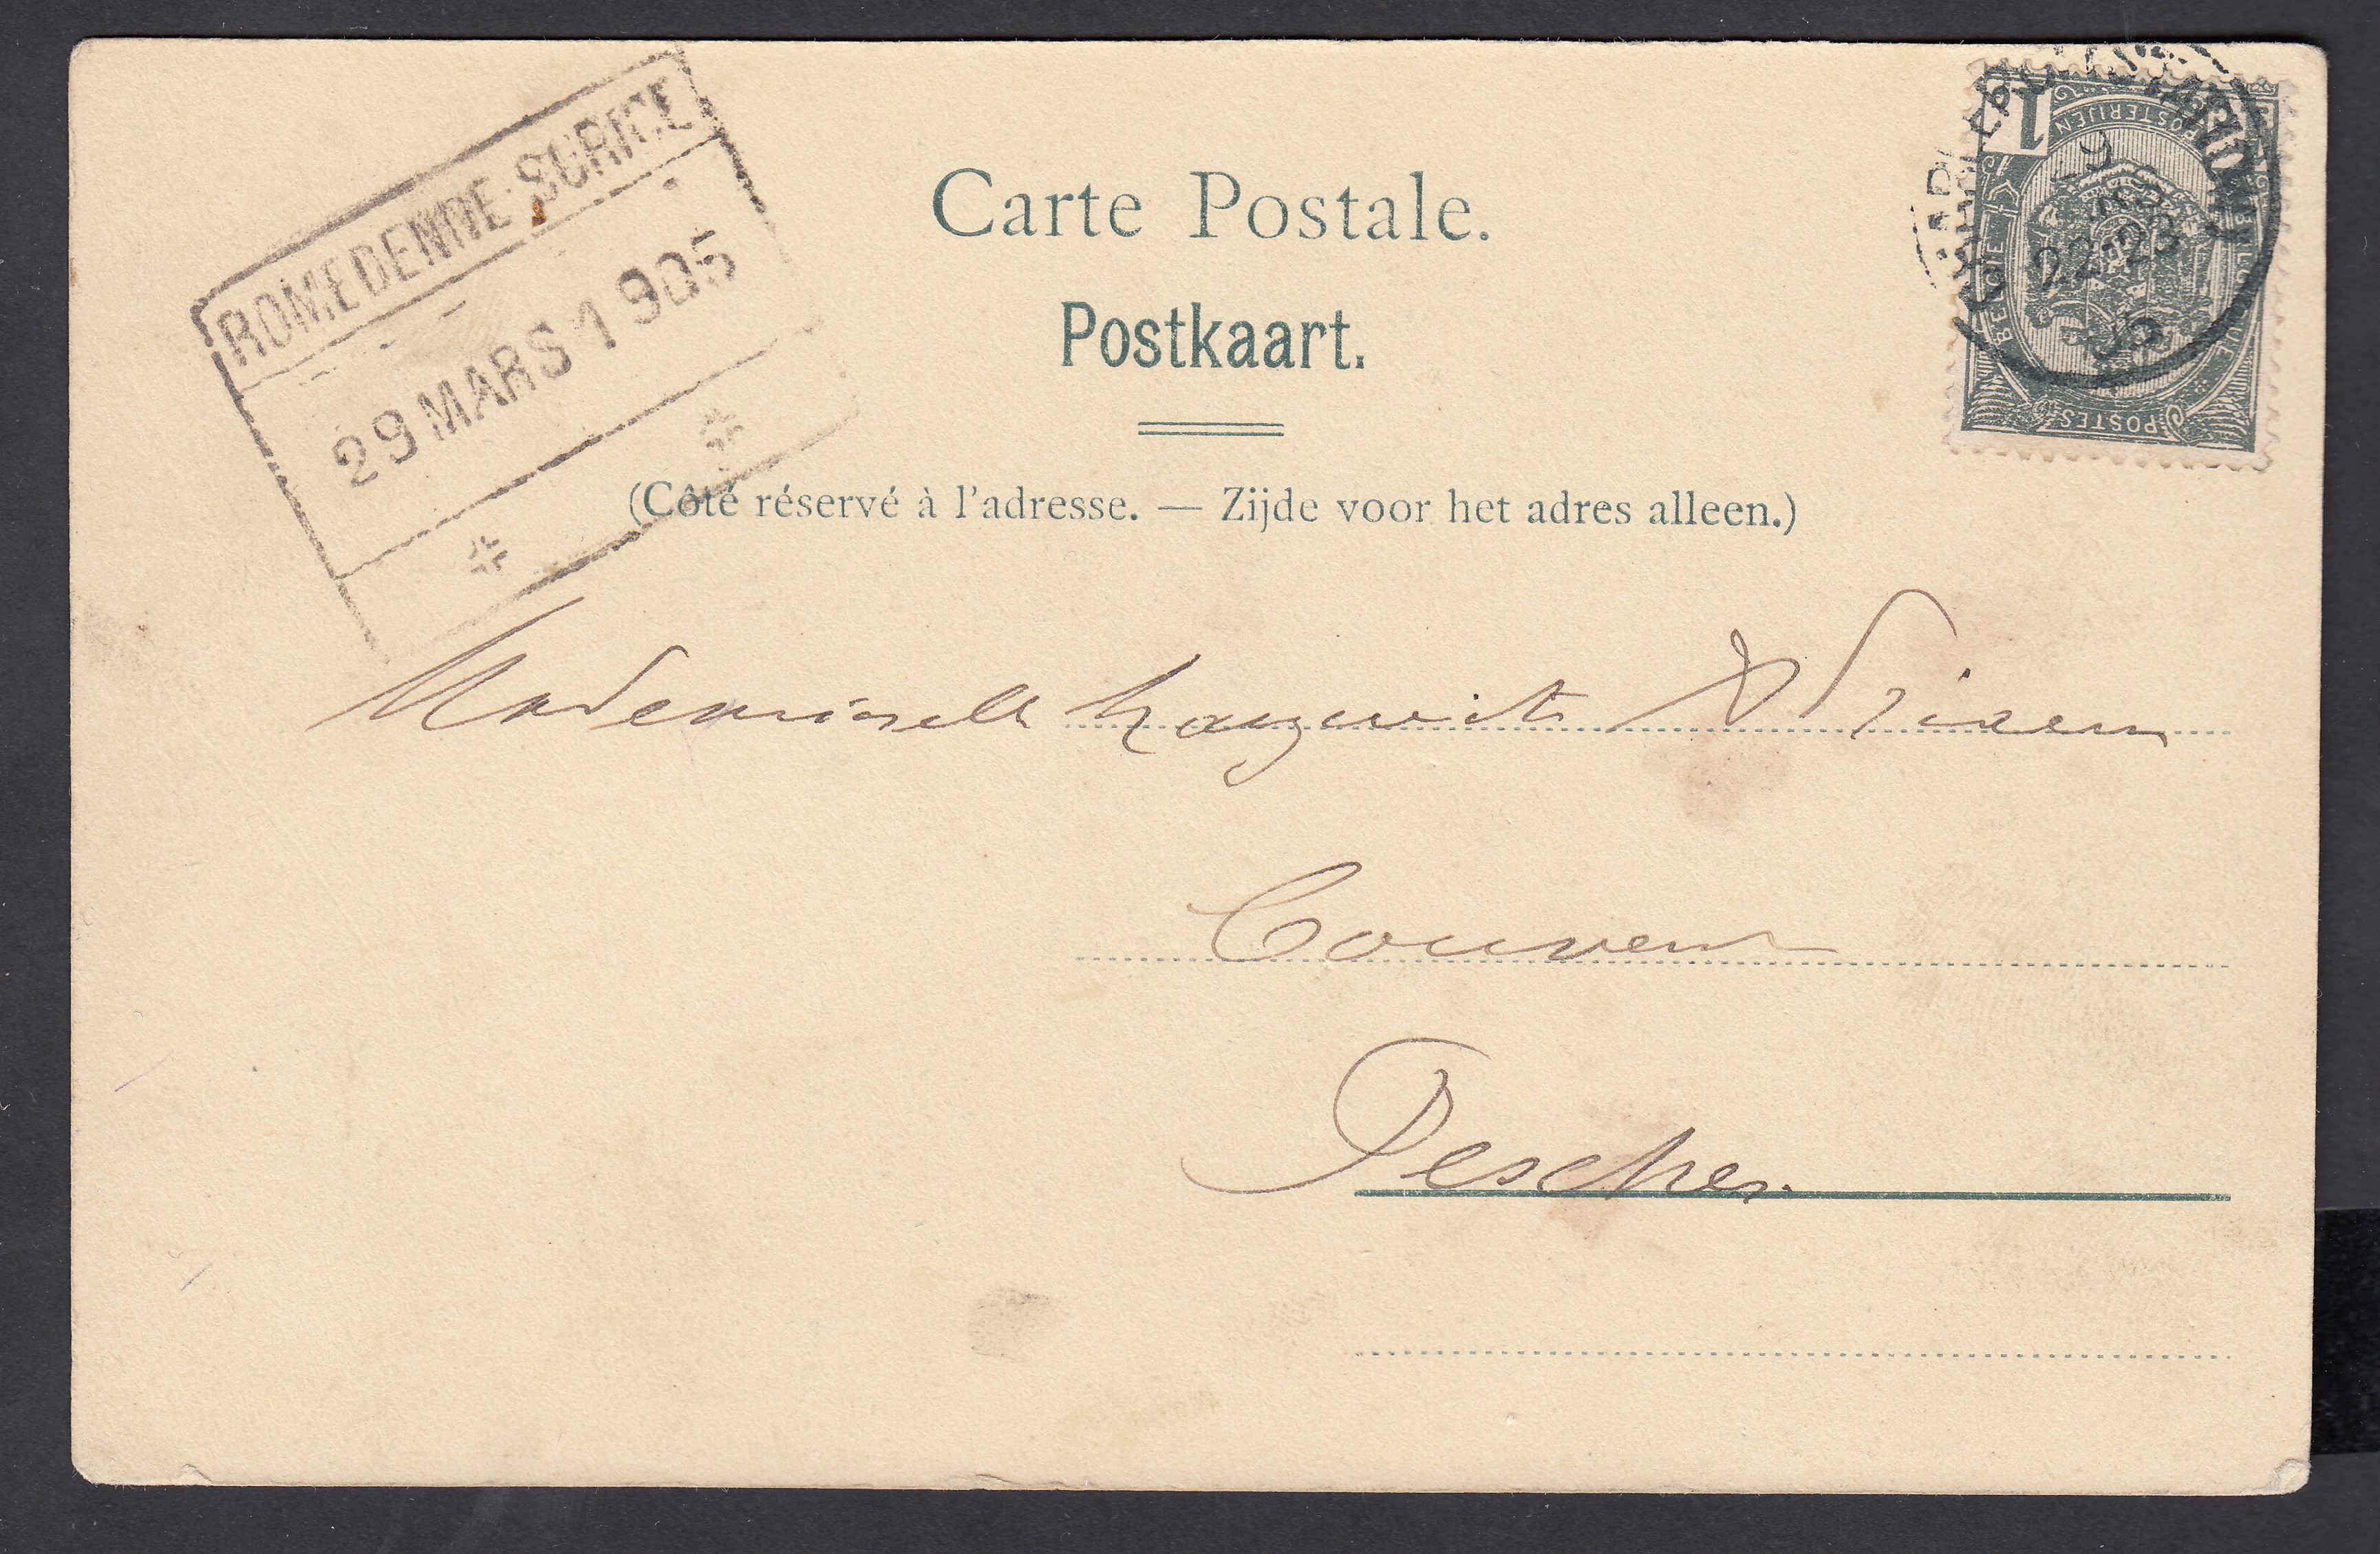 ROMEDENNE-SURICE
29 MARS 1905
Carte Postale.
Postkaart.
(Côté réservé à l'adresse. — Zijde voor het adres alleen.)
1
POSTERIJEN
BELGIE
BELGIQUE
POSTES
22-23
05
Mademoiselle
Couvent
Pesches